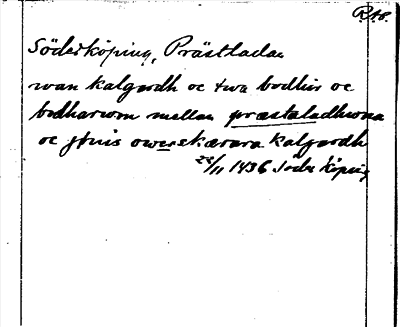 R.48.
Söderköping, Prästladan
wan kalgardh oc twa bodhir oc
bodharwm mellan præstaladhwna
oc jønis owerskærara kalgardh
22/11 1436 Söderköping